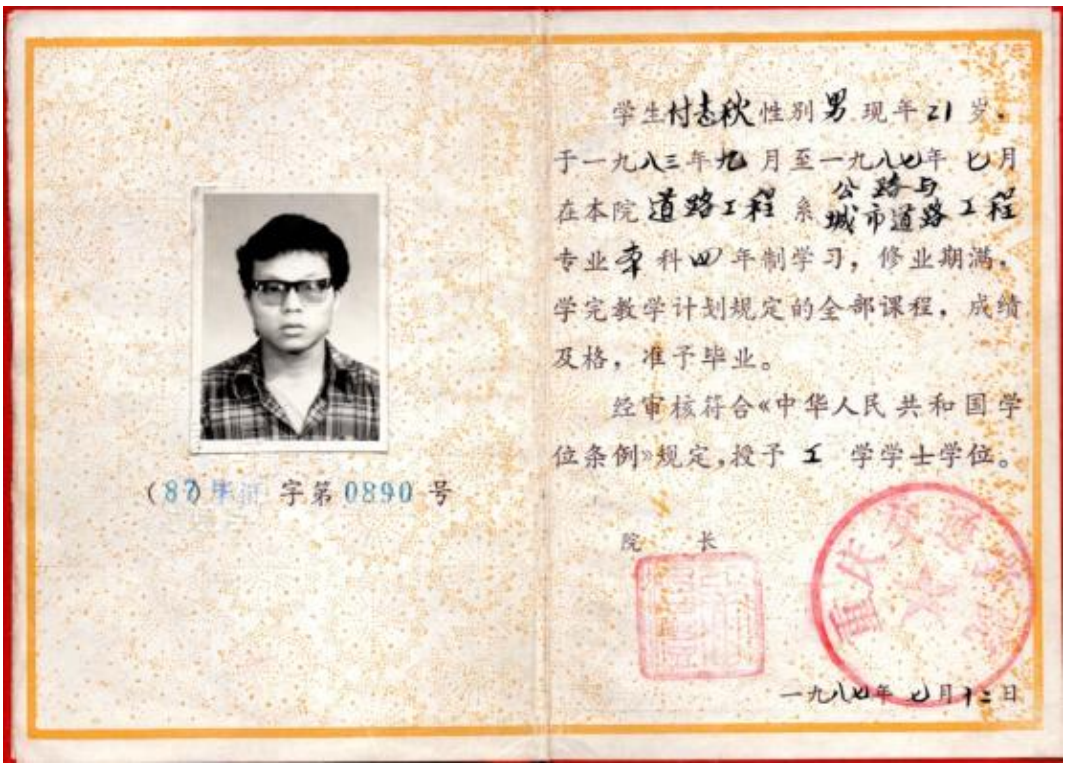 (87)毕 字第0890号
学生付志秋性别男现年21岁,
于一九八三年九月至一九八七年七月
在本院道路工程系公路与城市道路工程
专业本科四年制学习,修业期满,
学完教学计划规定的全部课程,成绩
及格,准予毕业。
经审核符合《中华人民共和国学
位条例》规定,授予工学学士学位。
院长
重庆交通学院
一九八七年七月十二日